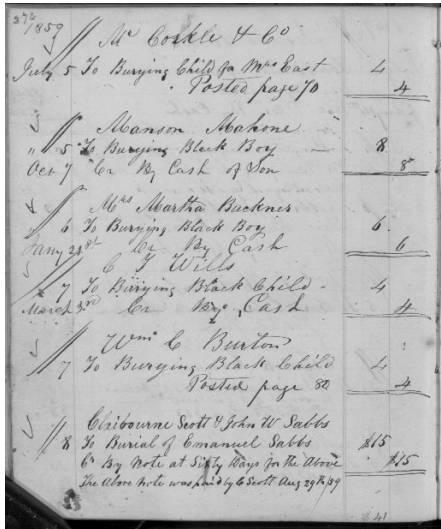 276
1859
Mc Corkle & Co
July 5 To Burying Child for Mrs East 4
Posted page 70 4
Manson Mahone
" 5 To Burying Black Boy 8
Oct 7 Cr By Cash of Son 8
Mrs Martha Buckner
6 To Burying Black Boy 6
Jany 21st Cr By Cash 6
C T Wills
7 To Burying Black Child - 4
March 3rd Cr By Cash 4
Wm C Burton
7 To Burying Black Child 4
Posted page 80 4
Claibourne Scott & John W Sabbs
8 To Burial of Emanuel Sabbs $15
Cr By Note at Sixty Days for the Above $15
The Above Note was paid by C Scott Aug 29th/59